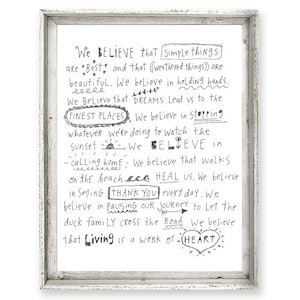 We BELIEVE that simple things
are Best, and that ((weathered things)) are
beautiful. We believe in holding hands.
We Believe that DREAMS Lead us to the
FINEST PLACES. We believe in stopping
whatever we're doing to watch the
sunset We BELIEVE in
calling home. We believe that walks
on the beach HEAL us. We believe
in saying THANK YOU every day. We
believe in pausing our journey to let the
duck family cross the Road. We believe
that Living is a work of HEART